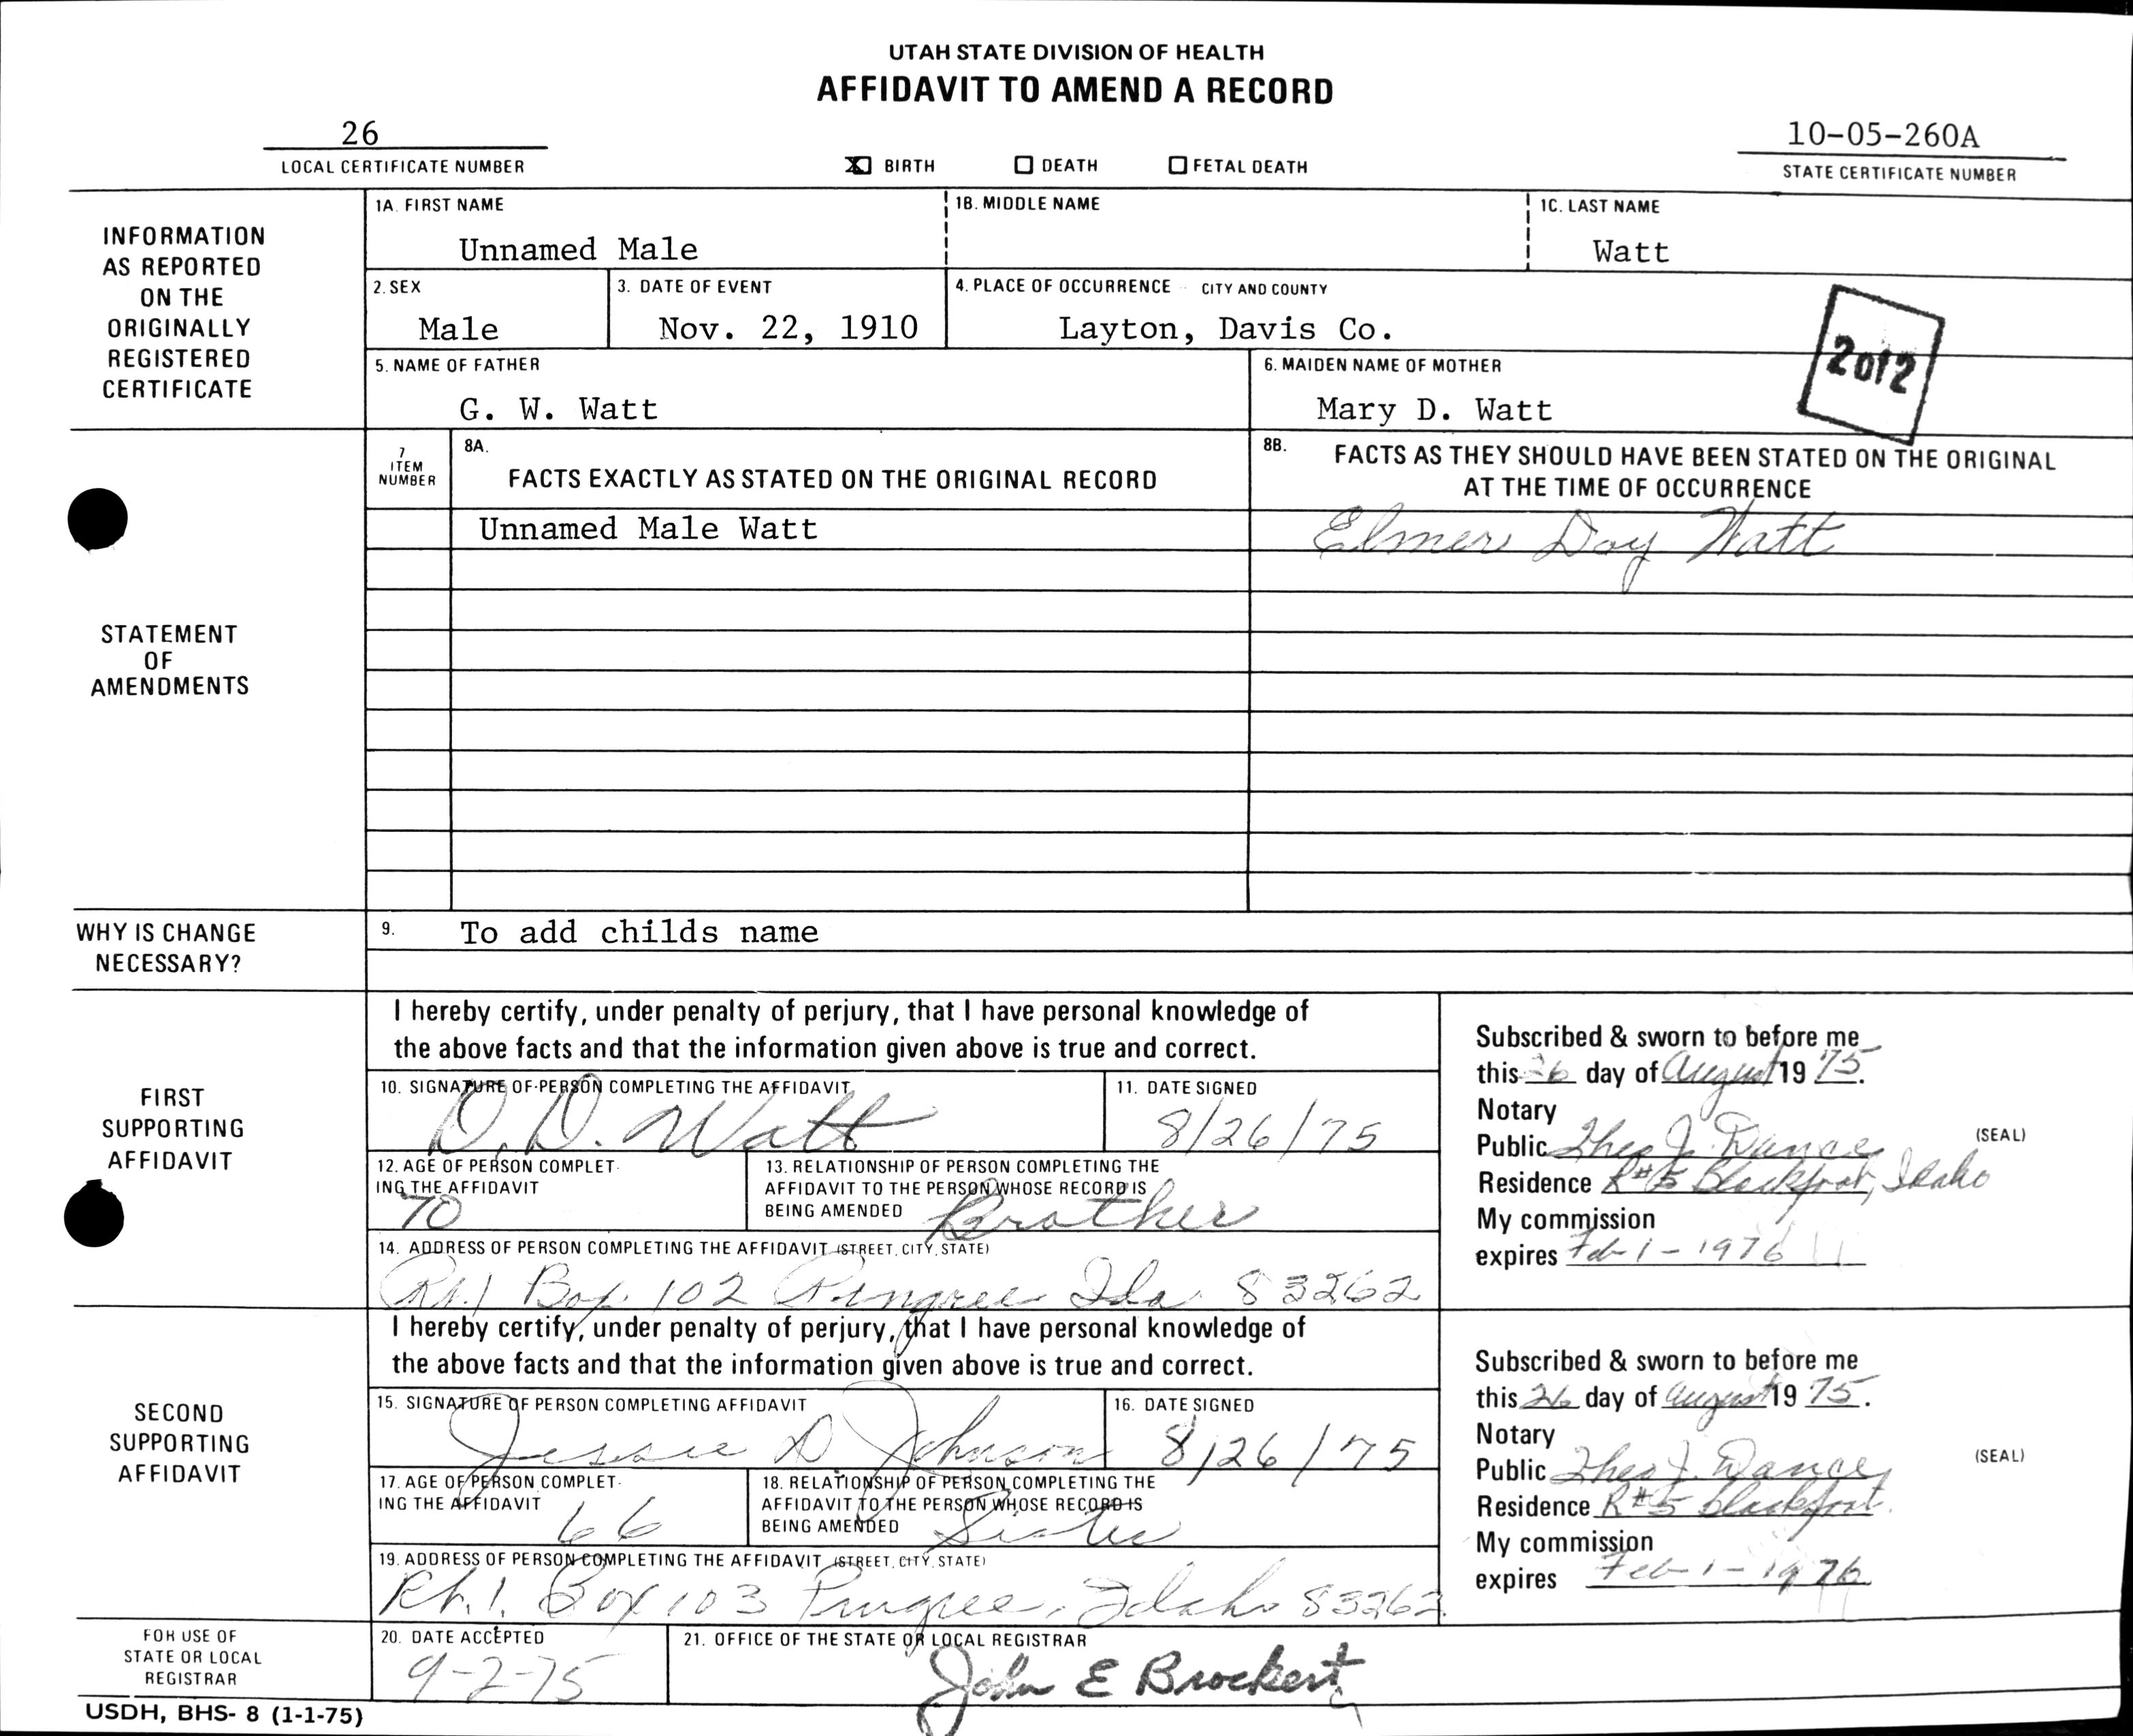 UTAH STATE DIVISION OF HEALTH
AFFIDAVIT TO AMEND A RECORD
26
LOCAL CERTIFICATE NUMBER
X BIRTH DEATH FETAL DEATH
10-05-260A
STATE CERTIFICATE NUMBER
INFORMATION
AS REPORTED
ON THE
ORIGINALLY
REGISTERED
CERTIFICATE
1A. FIRST NAME
Unnamed Male
1B. MIDDLE NAME
1C. LAST NAME
Watt
2. SEX
Male
3. DATE OF EVENT
Nov. 22, 1910
4. PLACE OF OCCURRENCE - CITY AND COUNTY
Layton, Davis Co.
2 of 2
5. NAME OF FATHER
G. W. Watt
6. MAIDEN NAME OF MOTHER
Mary D. Watt
STATEMENT
OF
AMENDMENTS
7
ITEM
NUMBER
8A.
FACTS EXACTLY AS STATED ON THE ORIGINAL RECORD
8B. FACTS AS THEY SHOULD HAVE BEEN STATED ON THE ORIGINAL
AT THE TIME OF OCCURRENCE
Unnamed Male Watt
Elmer Day Watt
WHY IS CHANGE
NECESSARY?
9. To add childs name
FIRST
SUPPORTING
AFFIDAVIT
I hereby certify, under penalty of perjury, that I have personal knowledge of
the above facts and that the information given above is true and correct.
10. SIGNATURE OF PERSON COMPLETING THE AFFIDAVIT
D. D. Watt
11. DATE SIGNED
8/26/75
12. AGE OF PERSON COMPLET-
ING THE AFFIDAVIT
70
13. RELATIONSHIP OF PERSON COMPLETING THE
AFFIDAVIT TO THE PERSON WHOSE RECORD IS
BEING AMENDED Brother
14. ADDRESS OF PERSON COMPLETING THE AFFIDAVIT (STREET, CITY, STATE)
Rt.1 Box 102 Pingree Ida. 83262
Subscribed & sworn to before me
this 26 day of August 19 75.
Notary
Public Theo J. Dance
(SEAL)
Residence R#5 Blackfoot, Idaho
My commission
expires Feb 1 - 1976
SECOND
SUPPORTING
AFFIDAVIT
I hereby certify, under penalty of perjury, that I have personal knowledge of
the above facts and that the information given above is true and correct.
15. SIGNATURE OF PERSON COMPLETING AFFIDAVIT
Jessie D Johnson
16. DATE SIGNED
8/26/75
17. AGE OF PERSON COMPLET-
ING THE AFFIDAVIT 66
18. RELATIONSHIP OF PERSON COMPLETING THE
AFFIDAVIT TO THE PERSON WHOSE RECORD IS
BEING AMENDED Sister
19. ADDRESS OF PERSON COMPLETING THE AFFIDAVIT (STREET, CITY, STATE)
Rt. 1. Box 103 Pingree, Idaho 83262
Subscribed & sworn to before me
this 26 day of August 19 75.
Notary
Public Theo J. Dance
(SEAL)
Residence R#5 Blackfoot.
My commission
expires Feb-1-1976
FOR USE OF
STATE OR LOCAL
REGISTRAR
20. DATE ACCEPTED
9-2-75
21. OFFICE OF THE STATE OR LOCAL REGISTRAR
John E Brockert
USDH, BHS- 8 (1-1-75)